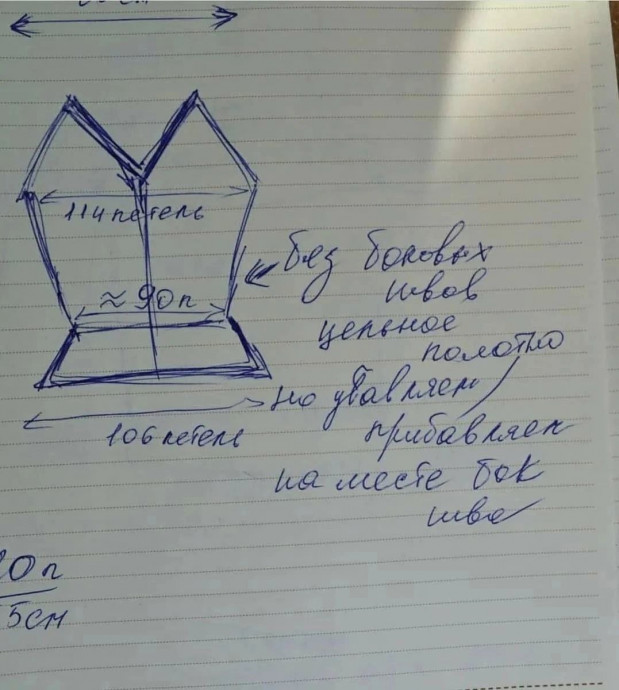 114 петель
≈ 90п
106 петель
без боковых
швов
цельное
полотно
но убавляем
прибавляем
на месте бок
шва
5см